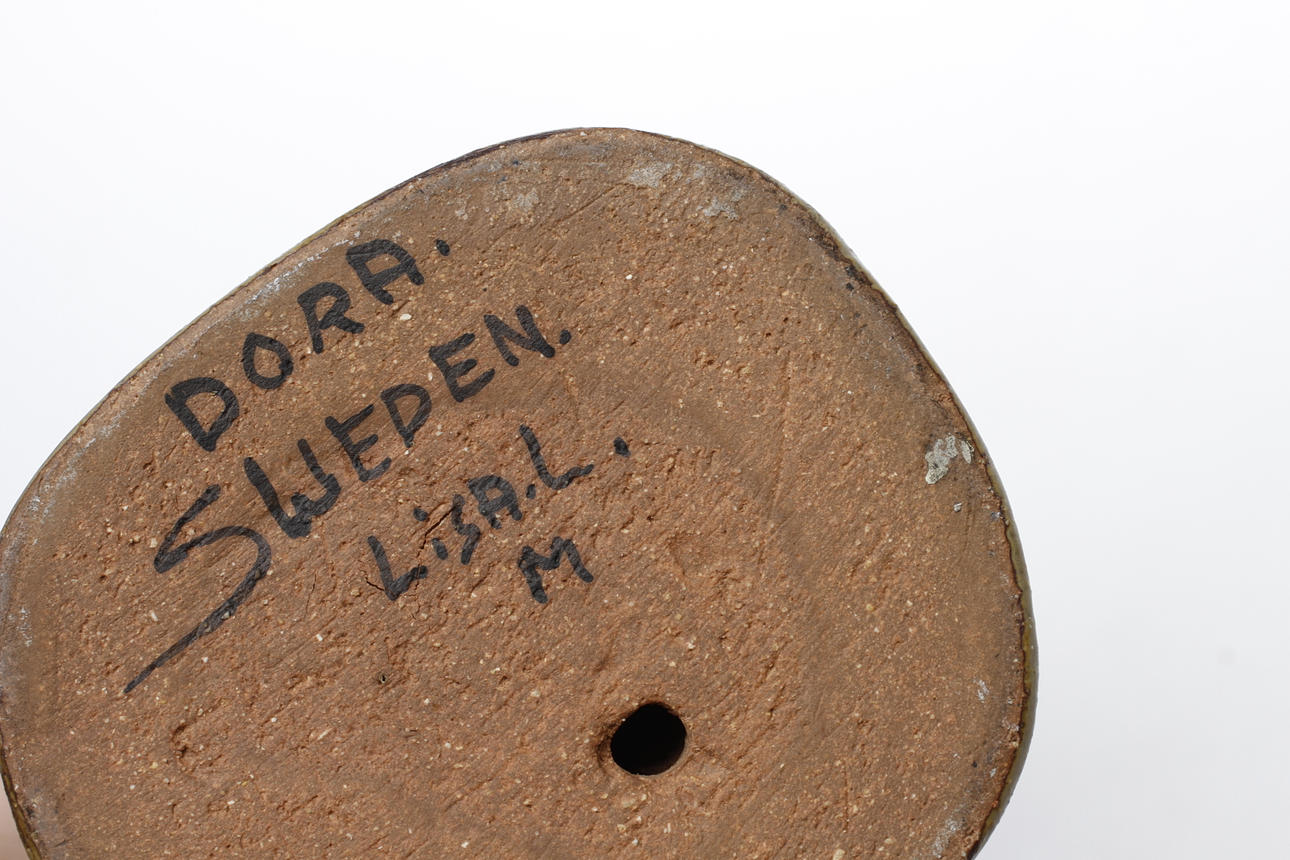 DORA.
SWEDEN.
LiSA.L.
M